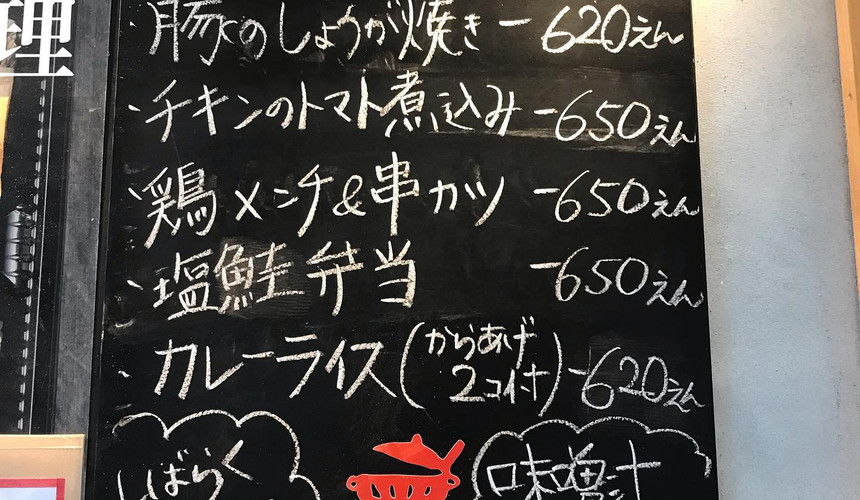 理
・豚のしょうが焼き - 620えん
・チキンのトマト煮込み - 650えん
・鶏メンチ&串カツ - 650えん
・塩鮭弁当 - 650えん
・カレーライス(からあげ2コ付) - 620えん
しばらく
味噌汁